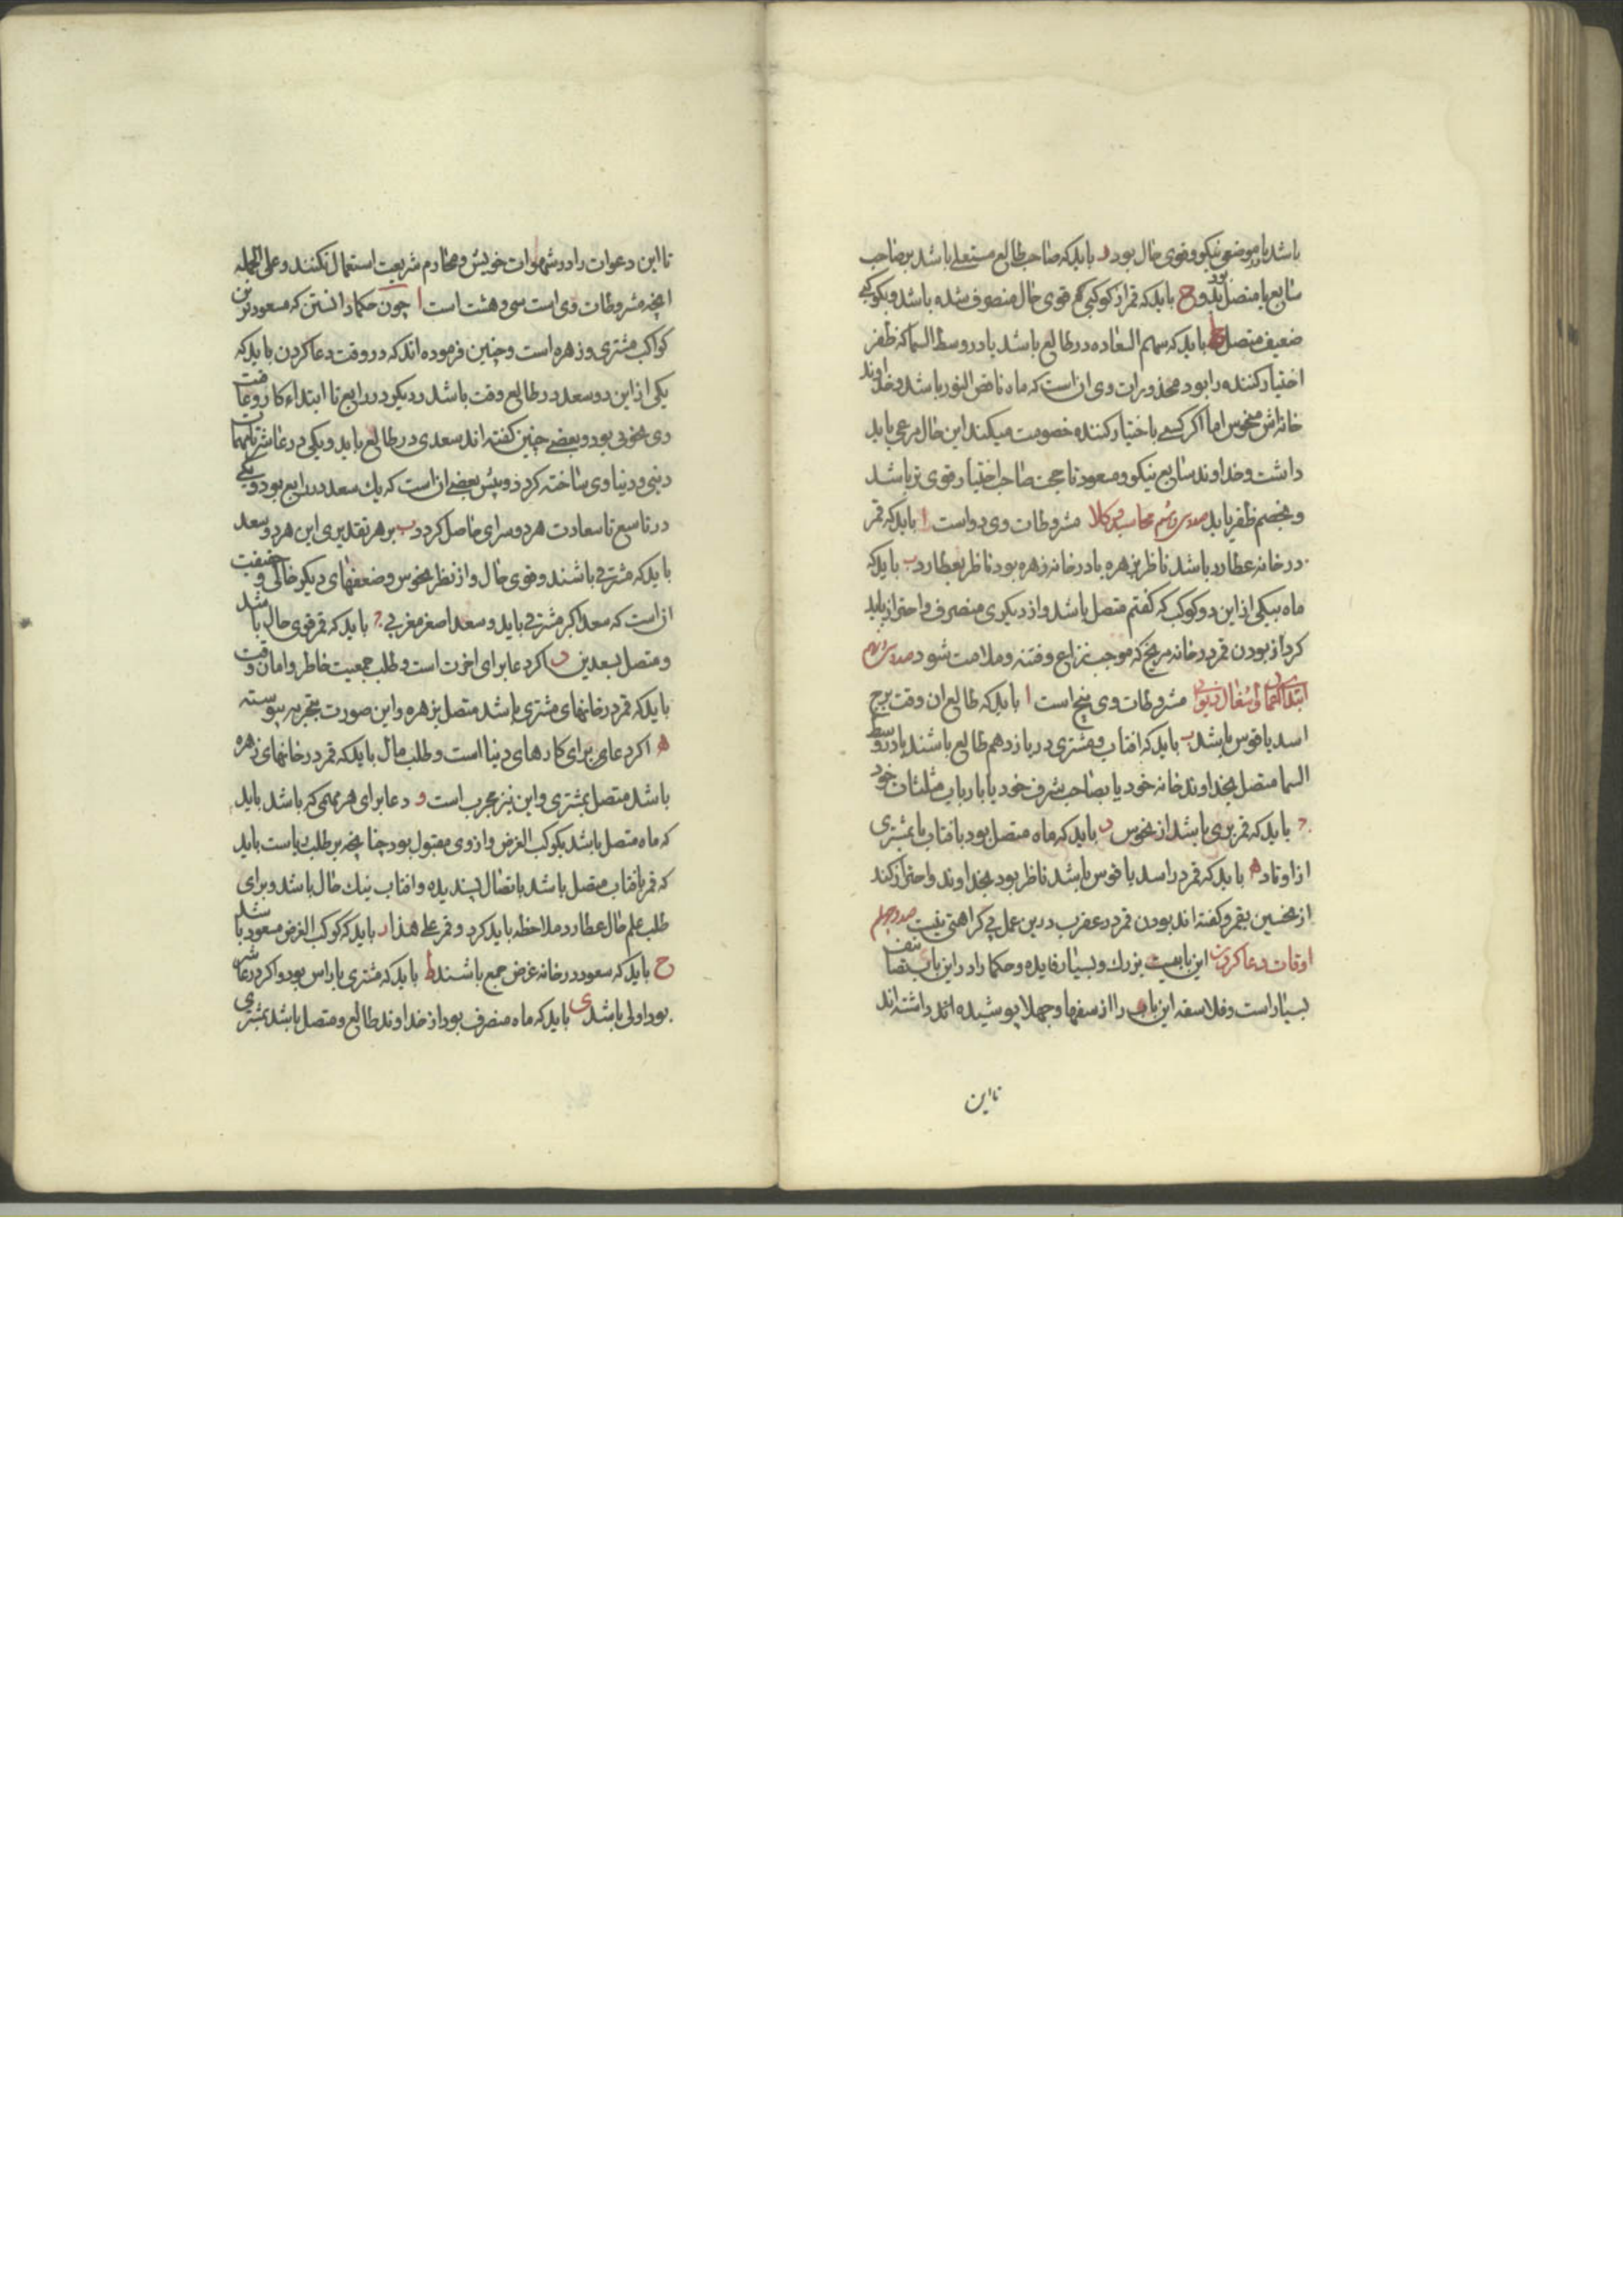 باشد یا بموضعی نیکو و قوی حال بود ر باید که صاحب طالع مستعلی باشد بر صاحب
سابع یا متصل بود بدو ح باید که قمر از کوکبی هم قوی حال منصرف شده باشد و بکوکبی
ضعیف متصل ط باید که سهم السعاده در طالع باشد یا در وسط السما که ظفر
اختیار کننده را بود محذورات وی ان است که ماه ناقص النور باشد و خداوند
خانه اش منحوس اما اکر کسی با اختیار کننده خصومت میکند این حال مرعی باید
داشت و خداوند سابع نیکو و مسعود تا حجت صاحب اختیار قوی تر باشد
و بخصم ظفر یابد محاسبه وکلا مشروطات وی دو است ا باید که قمر
در خانه عطارد باشد ناظر بزهره یا در خانه زهره بود ناظر بعطارد ب باید که
ماه بیکی از این دو کوکب که کفتم متصل باشد و از دیکری منصرف و احتراز باید
کرد از بودن قمر در خانه مریخ که موجب نزاع و فتنه و ملامت شود
ابتدا اعمال و اشغال دیوانی مشروطات وی پنج است ا باید که طالع ان وقت برج
اسد یا قوس باشد ب باید که افتاب و مشتری در یازدهم طالع باشند یا در وسط
السما متصل بخداوند خانه خود یا بصاحب شرف خود یا بارباب مثلثات خود
ج باید که قمر بری باشد از نحوس د باید که ماه متصل بود بافتاب یا بمشتری
از اوتاد ه باید که قمر در اسد یا قوس باشد ناظر بود بخداوند و احتراز کند
از نحسین بقمر و کفته اند بودن قمر در عقرب درین عمل بی کراهتی نیست صد و چهلم
اوقات دعا کردن این بابیست بزرك و بسیار فایده و حکما را در این باب تصانیف
بسیار است و فلاسفه این باب را از سفها و جهلا پوشیده اند داشته اند
تا این
تا این دعوات را در شهوات خویش و محارم شریعت استعمال نکنند و علی الجمله
انچه مشروطات وی است سی و هشت است ا چون حکما دانستن که مسعودترین
کواکب مشتری و زهره است و چنین فرموده اند که در وقت دعا کردن باید که
یکی از این دو سعد در طالع وقت باشد و دیکر در رابع تا ابتداء کار و عاقبت
وی بخوبی بود و بعضی چنین کفته اند سعدی در طالع باید و یکی در عاشر تا مهمات
دینی و دنیاوی ساخته کردد و پیش بعضی ان است که یك سعد در رابع بود و یکی
در تاسع تا سعادت هر دو سرای حاصل کردد ب بر هر تقدیری این هر دو سعد
باید که مشرقی باشند و قوی حال و از نظر نحوس و ضعفهای دیکر خالی و حقیقت
ان است که سعد اکبر مشرقی باید و سعد اصغر مغربی ج باید که قمر قوی حال باشد
و متصل بسعدین د اکر دعا برای اخرت است و طلب جمعیت خاطر و امان وقت
باید که قمر در خانهای مشتری باشد متصل بزهره و این صورت بتجربه پیوسته
ه اکر دعای برای کارهای دنیا است و طلب مال باید که قمر در خانهای زهره
باشد متصل بمشتری و این نیز مجرب است و دعا برای هر مهمی که باشد باید
که ماه متصل باشد بکوکب الغرض و از وی مقبول بود چنانچه بر طلب ریاست باید
که قمر بافتاب متصل باشد باتصال پسندیده و افتاب نیك حال باشد و برای
طلب علم حال عطارد ملاحظه باید کرد و قمر علی هذا ر باید که کوکب الغرض مسعود باشد
ح باید که سعود در خانه غرض جمع باشند ط باید که مشتری با راس بود و اکر در عاشر
بود اولی باشد ی باید که ماه منصرف بود از خداوند طالع و متصل باشد بمشتری